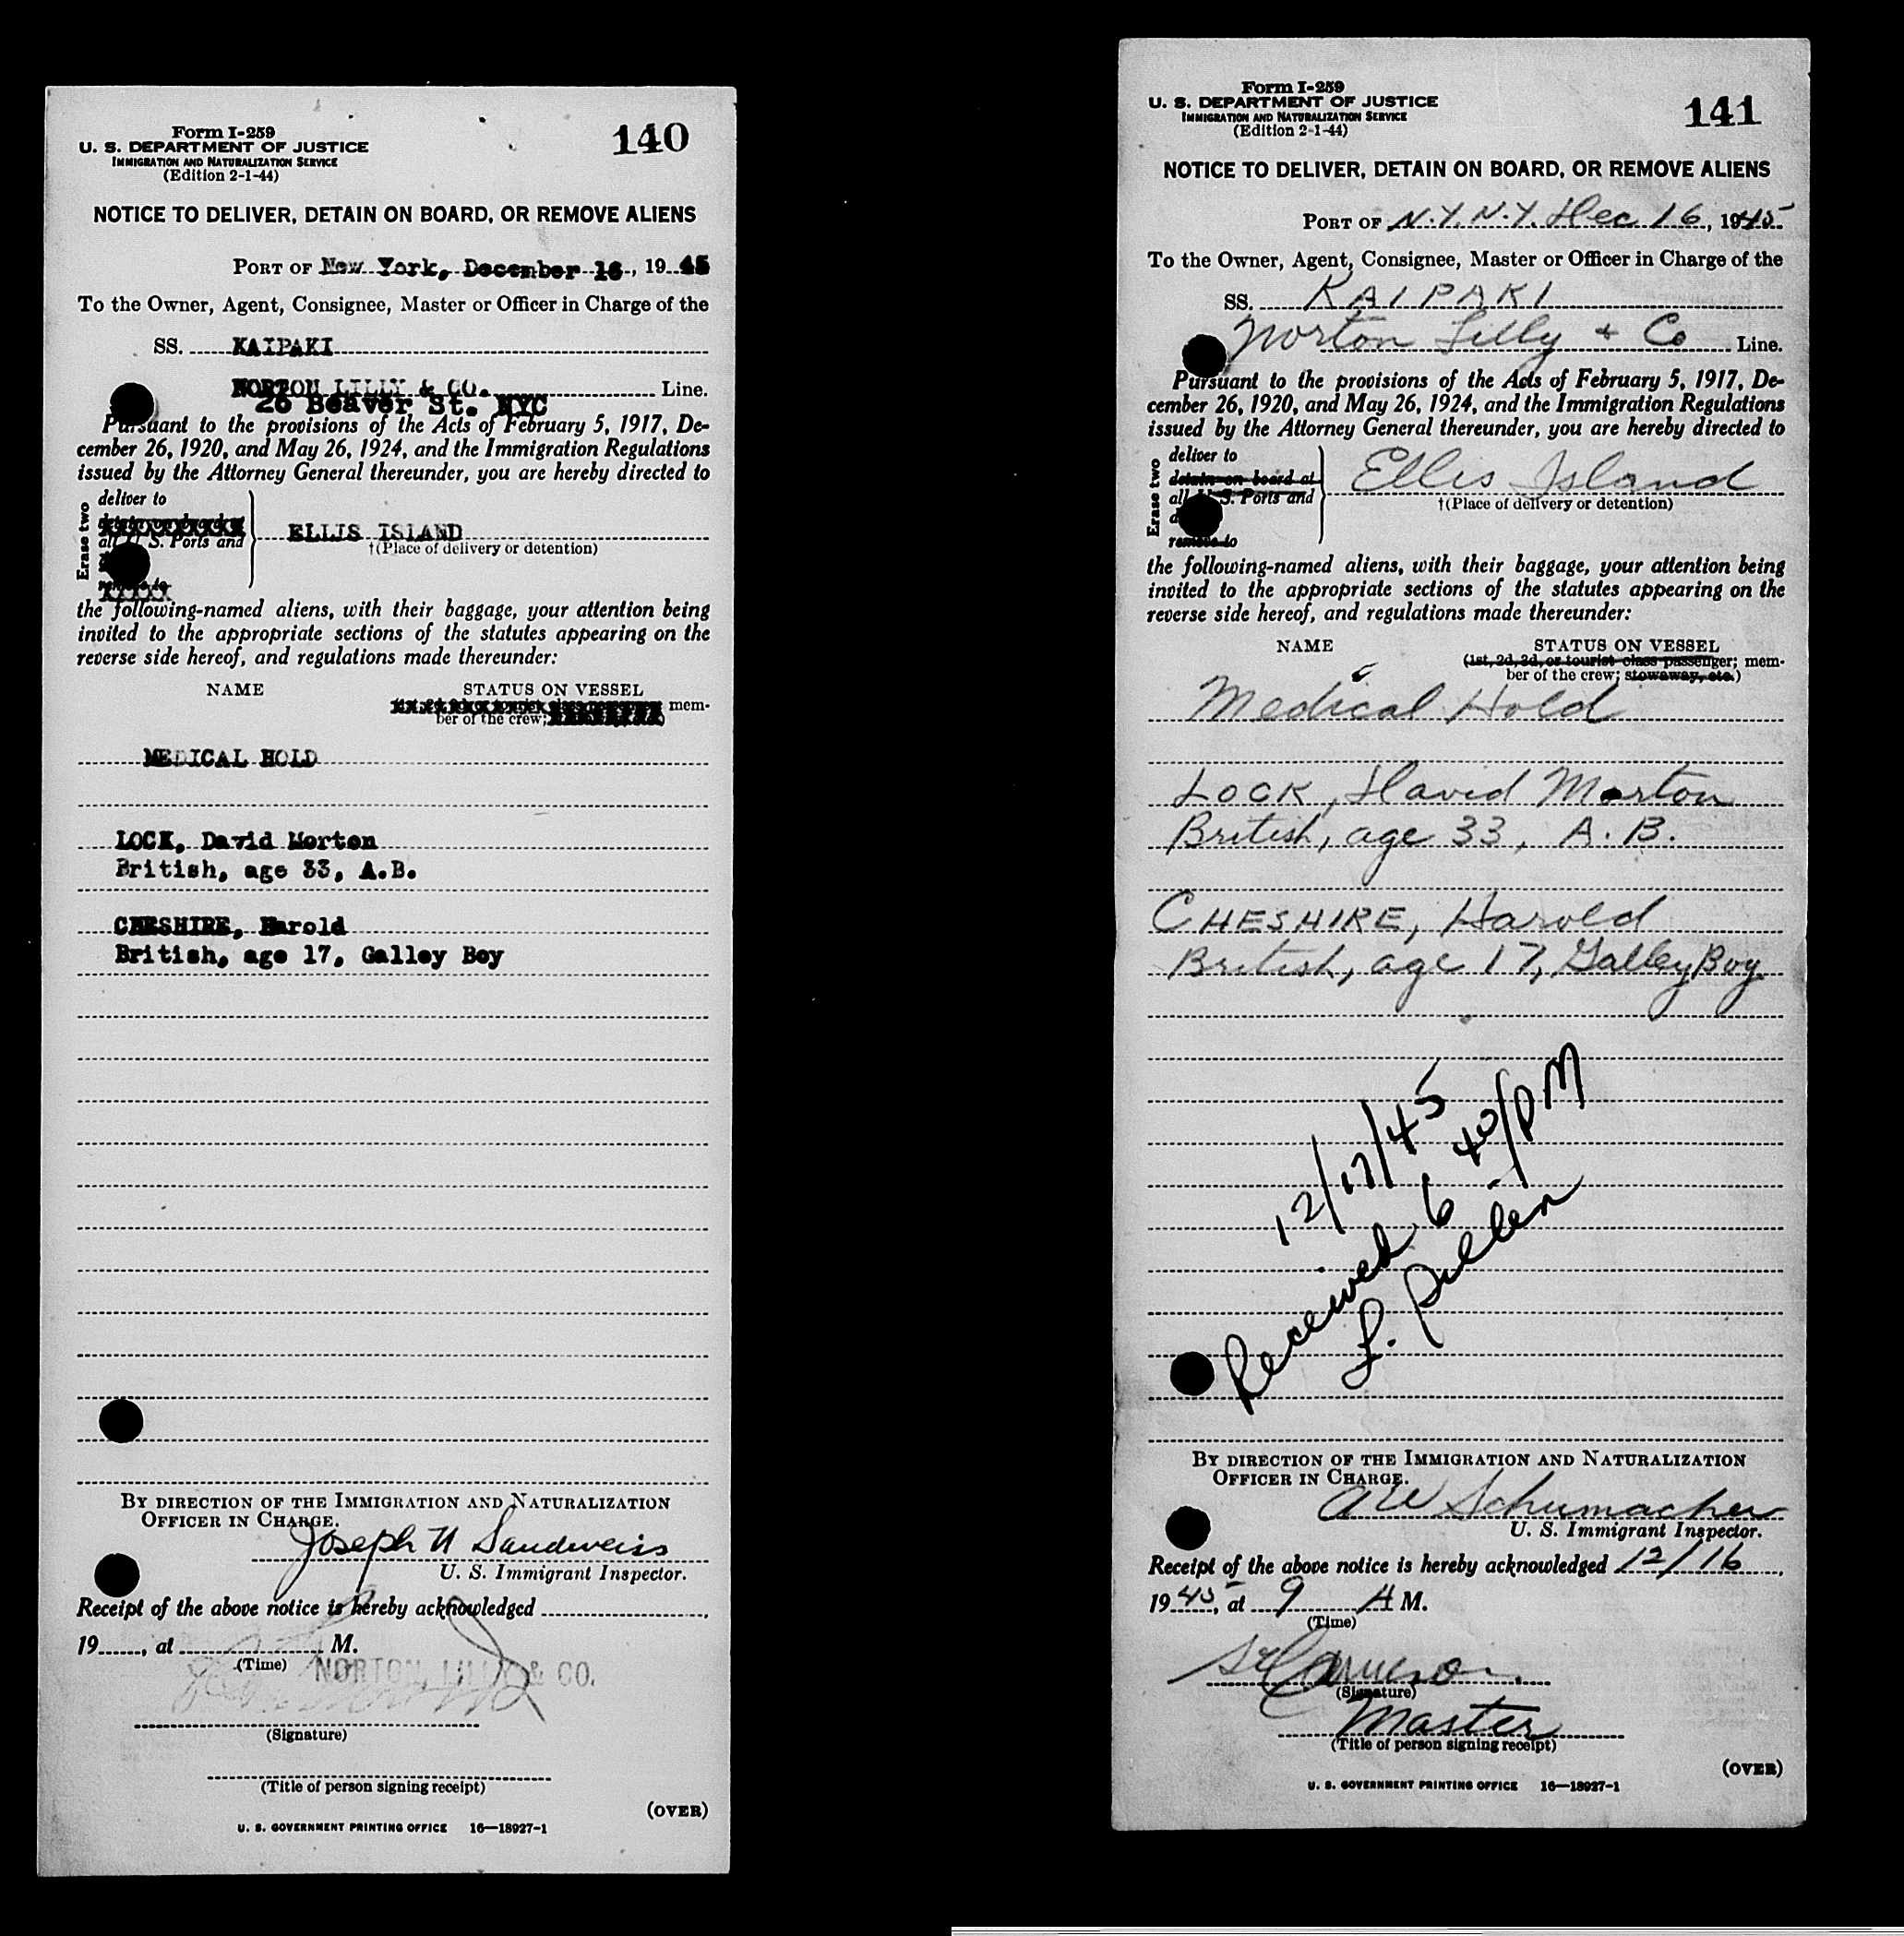 Form I-259
U. S. DEPARTMENT OF JUSTICE
IMMIGRATION AND NATURALIZATION SERVICE
(Edition 2-1-44)
140
NOTICE TO DELIVER, DETAIN ON BOARD, OR REMOVE ALIENS
PORT OF New York, December 16, 1945
To the Owner, Agent, Consignee, Master or Officer in Charge of the
SS. KAIPAKI
NORTON LILLY & CO. Line.
26 Beaver St. NYC
Pursuant to the provisions of the Acts of February 5, 1917, De-
cember 26, 1920, and May 26, 1924, and the Immigration Regulations
issued by the Attorney General thereunder, you are hereby directed to
Erase two
deliver to
detain on board at
all U. S. Ports and
remove to
ELLIS ISLAND
†(Place of delivery or detention)
the following-named aliens, with their baggage, your attention being
invited to the appropriate sections of the statutes appearing on the
reverse side hereof, and regulations made thereunder:
NAME STATUS ON VESSEL
mem-
ber of the crew;
MEDICAL HOLD
LOCK, David Morton
British, age 33, A.B.
CHESHIRE, Harold
British, age 17, Galley Boy
BY DIRECTION OF THE IMMIGRATION AND NATURALIZATION
OFFICER IN CHARGE.
Joseph N Sandweiss
U. S. Immigrant Inspector.
Receipt of the above notice is hereby acknowledged
19, at M.
(Time)
NORTON, LILLY & CO.
(Signature)
(Title of person signing receipt)
(OVER)
U. S. GOVERNMENT PRINTING OFFICE 16—18927-1
Form I-259
U. S. DEPARTMENT OF JUSTICE
IMMIGRATION AND NATURALIZATION SERVICE
(Edition 2-1-44)
141
NOTICE TO DELIVER, DETAIN ON BOARD, OR REMOVE ALIENS
PORT OF N.Y. N.Y. Dec 16, 1945
To the Owner, Agent, Consignee, Master or Officer in Charge of the
SS. KAIPAKI
Norton Lilly & Co Line.
Pursuant to the provisions of the Acts of February 5, 1917, De-
cember 26, 1920, and May 26, 1924, and the Immigration Regulations
issued by the Attorney General thereunder, you are hereby directed to
Erase two
deliver to
detain on board at
all U. S. Ports and
remove to
Ellis Island
†(Place of delivery or detention)
the following-named aliens, with their baggage, your attention being
invited to the appropriate sections of the statutes appearing on the
reverse side hereof, and regulations made thereunder:
NAME STATUS ON VESSEL
(1st, 2d, 3d, or tourist class passenger; mem-
ber of the crew; stowaway, etc.)
Medical Hold
LOCK, David Morton
British, age 33, A.B.
CHESHIRE, Harold
British, age 17, Galley Boy
12/17/45
Received 6 40/PM
L. Pullen
BY DIRECTION OF THE IMMIGRATION AND NATURALIZATION
OFFICER IN CHARGE.
AW Schumacher
U. S. Immigrant Inspector.
Receipt of the above notice is hereby acknowledged 12/16,
1945, at 9 A M.
(Time)
Cameron
(Signature)
Master
(Title of person signing receipt)
(OVER)
U. S. GOVERNMENT PRINTING OFFICE 16—18927-1